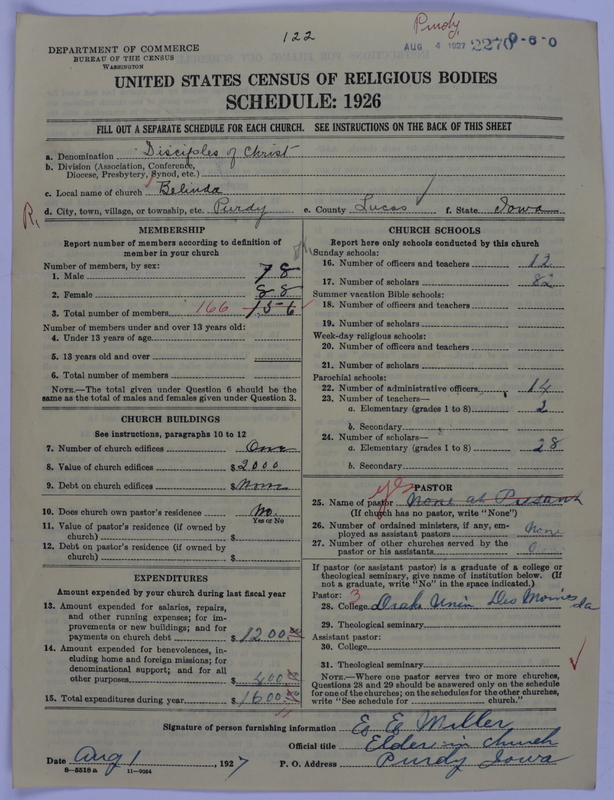 122
Purdy
AUG 4 1927 2270
DEPARTMENT OF COMMERCE
BUREAU OF THE CENSUS
WASHINGTON
UNITED STATES CENSUS OF RELIGIOUS BODIES
SCHEDULE: 1926
FILL OUT A SEPARATE SCHEDULE FOR EACH CHURCH. SEE INSTRUCTIONS ON THE BACK OF THIS SHEET
a. Denomination Disciples of Christ
b. Division (Association, Conference, Diocese, Presbytery, Synod, etc.)
c. Local name of church Belinda
R.
d. City, town, village, or township, etc. Purdy e. County Lucas f. State Iowa
MEMBERSHIP
Report number of members according to definition of
member in your church
Number of members, by sex:
1. Male 78
2. Female 88
3. Total number of members 166 156
Number of members under and over 13 years old:
4. Under 13 years of age
5. 13 years old and over
6. Total number of members
NOTE.—The total given under Question 6 should be the
same as the total of males and females given under Question 3.
CHURCH BUILDINGS
See instructions, paragraphs 10 to 12
7. Number of church edifices One
8. Value of church edifices $2000
9. Debt on church edifices $None
10. Does church own pastor's residence No
Yes or No
11. Value of pastor's residence (if owned by
church) $
12. Debt on pastor's residence (if owned by
church) $
EXPENDITURES
Amount expended by your church during last fiscal year
13. Amount expended for salaries, repairs,
and other running expenses; for im-
provements or new buildings; and for
payments on church debt $1200.00
14. Amount expended for benevolences, in-
cluding home and foreign missions; for
denominational support; and for all
other purposes $400.00
15. Total expenditures during year $1600.00
CHURCH SCHOOLS
Report here only schools conducted by this church
Sunday schools:
16. Number of officers and teachers 12
17. Number of scholars 82
Summer vacation Bible schools:
18. Number of officers and teachers
19. Number of scholars
Week-day religious schools:
20. Number of officers and teachers
21. Number of scholars
Parochial schools:
22. Number of administrative officers 14
23. Number of teachers—
a. Elementary (grades 1 to 8) 2
b. Secondary
24. Number of scholars—
a. Elementary (grades 1 to 8) 28
b. Secondary
PASTOR
yes
25. Name of pastor None at Presant
(If church has no pastor, write "None")
26. Number of ordained ministers, if any, em-
ployed as assistant pastors None
27. Number of other churches served by the
pastor or his assistants 0
If pastor (or assistant pastor) is a graduate of a college or
theological seminary, give name of institution below. (If
not a graduate, write "No" in the space indicated.)
Pastor: 3
28. College Drake Univ. Des Moines Ia
29. Theological seminary
Assistant pastor:
30. College
31. Theological seminary
NOTE.—Where one pastor serves two or more churches,
Questions 28 and 29 should be answered only on the schedule
for one of the churches; on the schedules for the other churches,
write "See schedule for church."
Signature of person furnishing information E. E. Miller
Official title Elder in church
Date Aug 1, 1927 P. O. Address Purdy Iowa
8—5518 a 11—9264